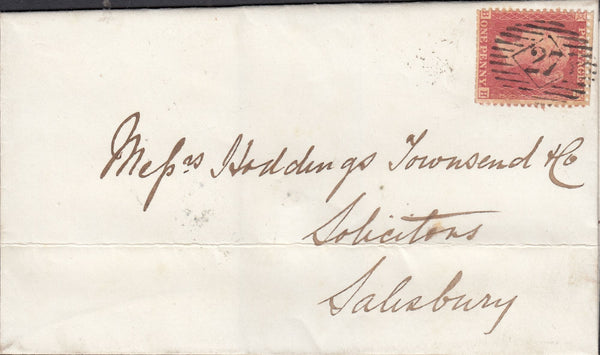 POSTAGE
ONE PENNY
H
27
Messrs Hoddings Townsend & Co
Solicitors
Salisbury